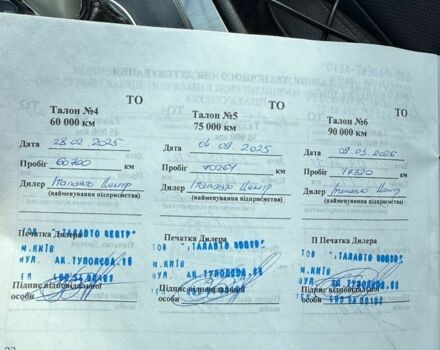 ТО
Талон №4
60 000 км
Дата 28 02 2025
Пробіг 60700 км
Дилер Італавто Центр
(найменування підприємства)
Печатка Дилера
ТОВ "ІТАЛАВТО ЦЕНТР"
М.КИЇВ
ВУЛ. АК.ТУПОЛЄВА,18
Підпис відповідальної
особи
ТО
Талон №5
75 000 км
Дата 04 09 2025
Пробіг 70261 км
Дилер Італавто Центр
(найменування підприємства)
Печатка Дилера
ТОВ "ІТАЛАВТО
М.КИЇВ
ВУЛ. АК.ТУПОЛЄВА
Підпис відповідальної
особи
ТО
Талон №6
90 000 км
Дата 09 03 2026
Пробіг 77320 км
Дилер Італавто Центр
(найменування підприємства)
П Печатка Дилера
ТОВ "ІТАЛАВТО
М.КИЇВ
ВУЛ. АК.ТУПОЛЄВА
Підпис відповідальної
особи